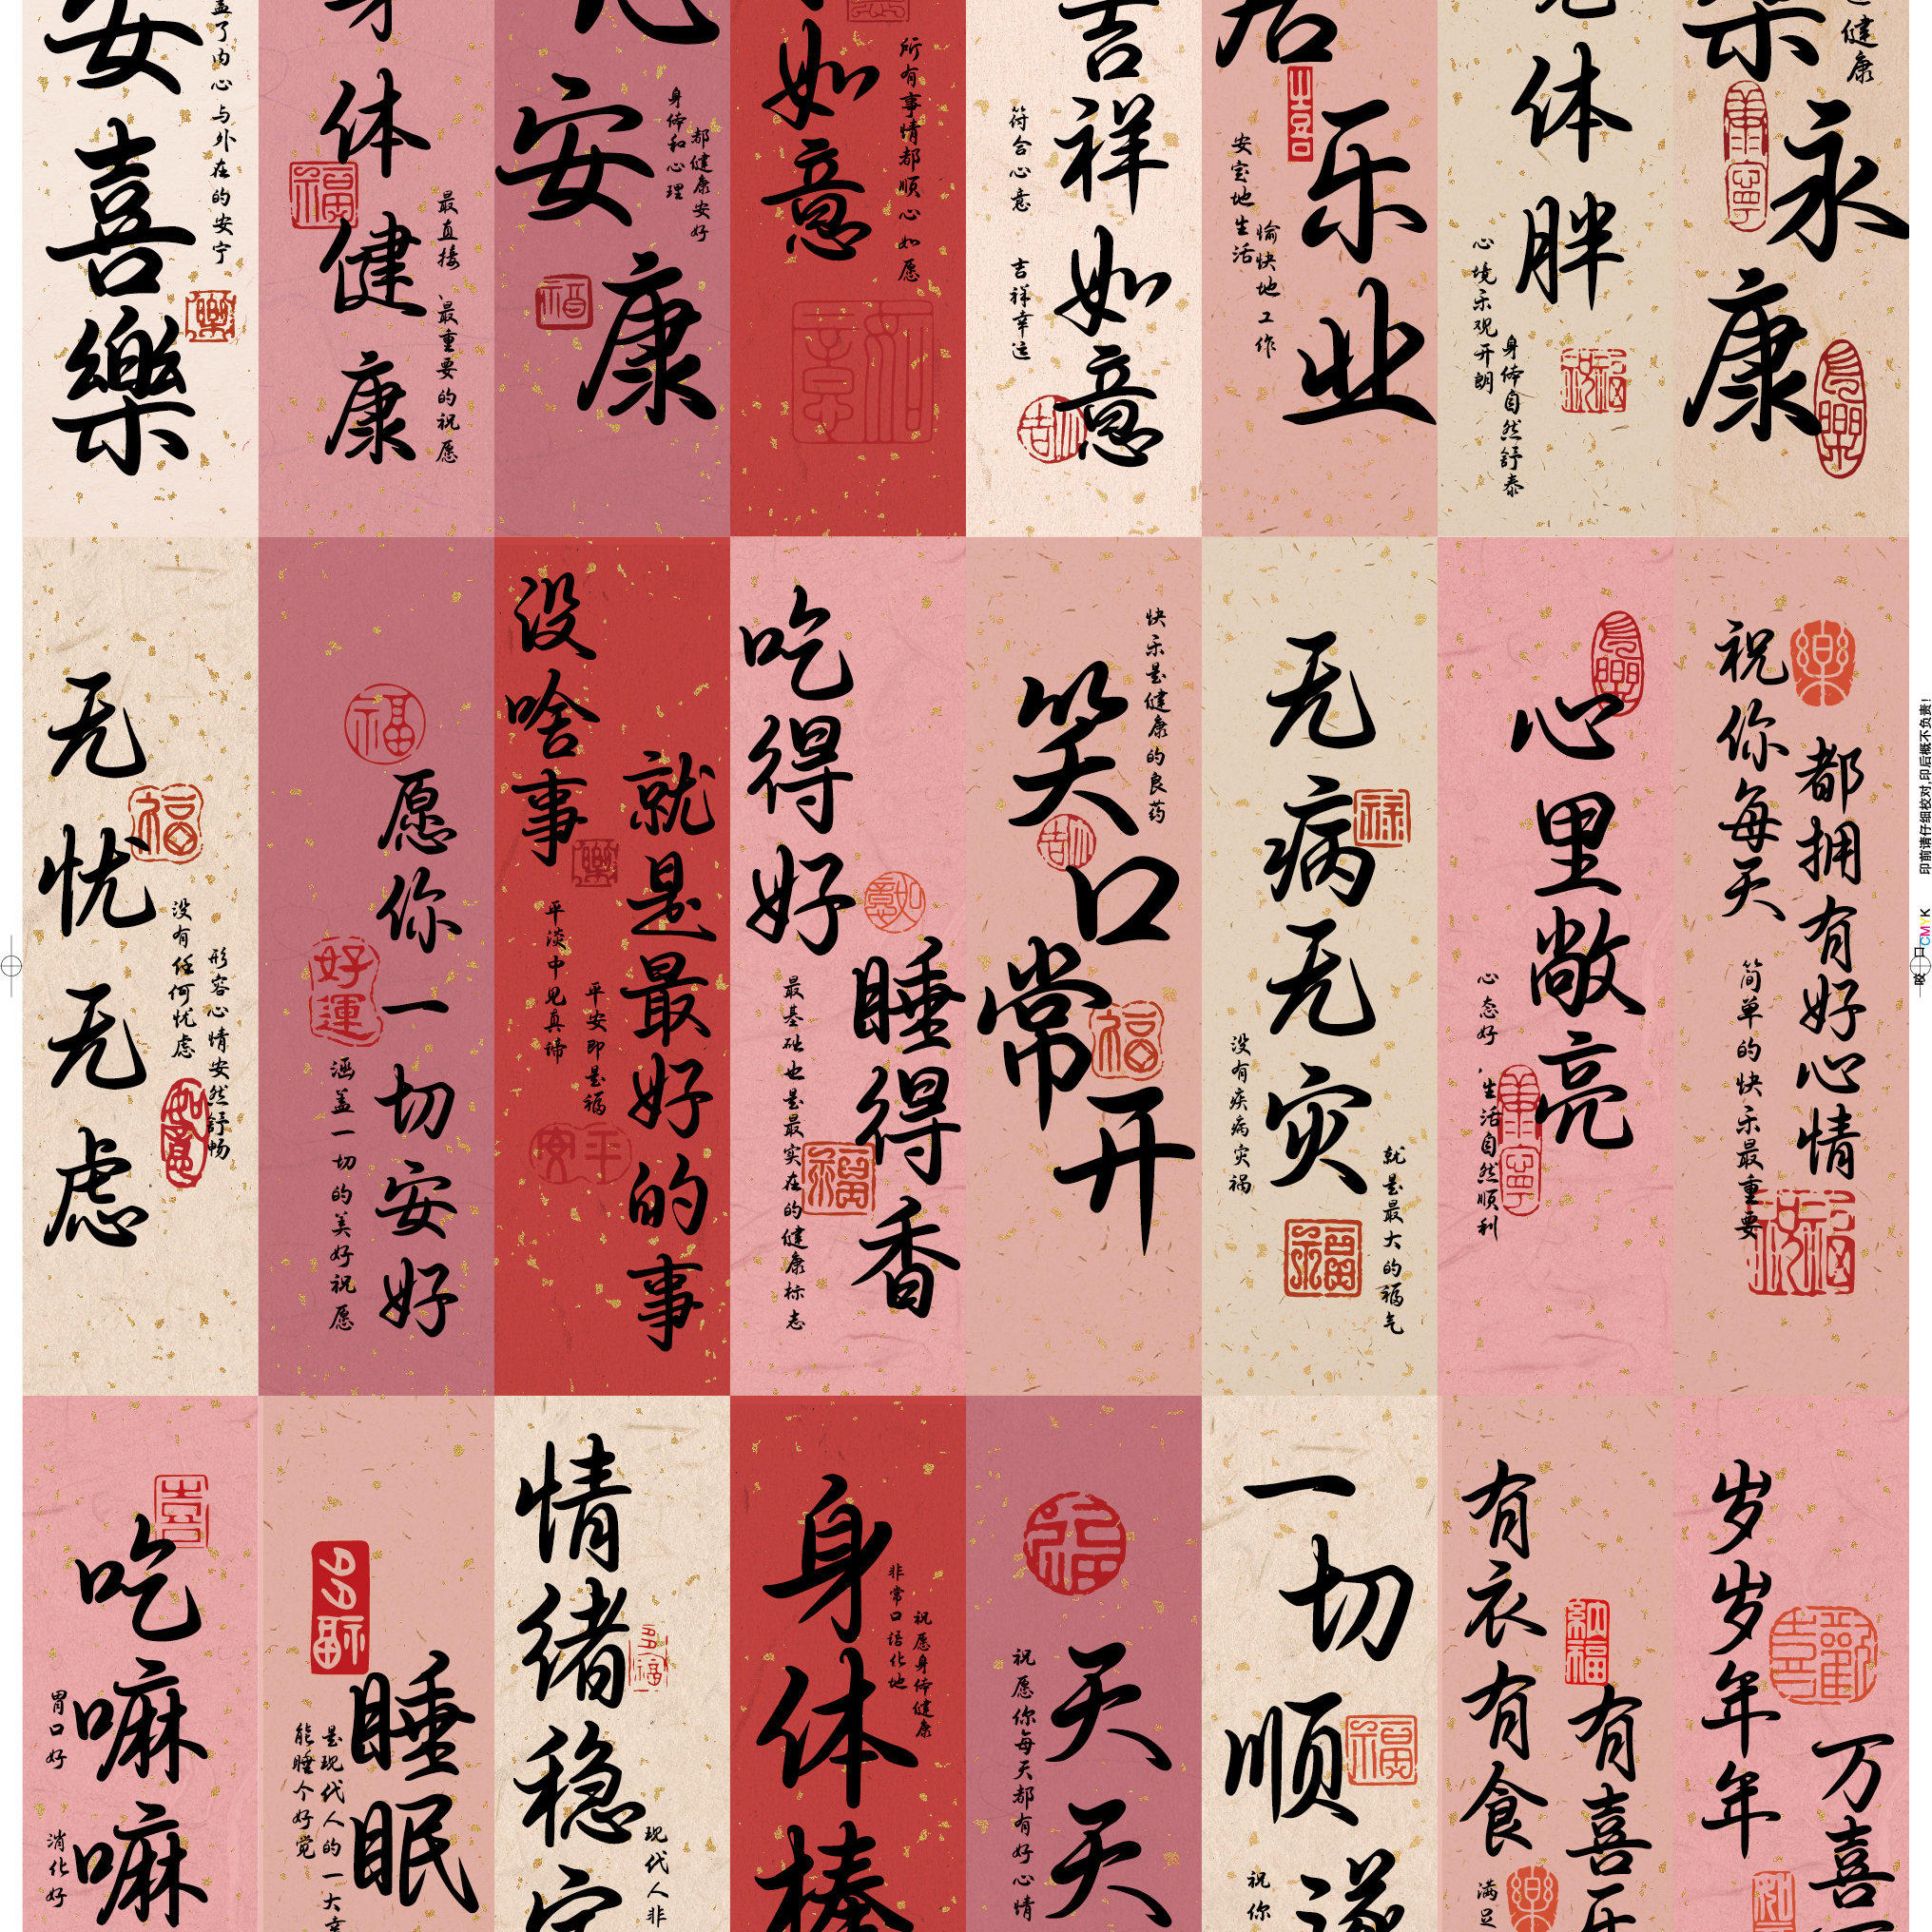 安喜樂
盖了内心与外在的安宁
体健康
最直接 最重要的祝愿
安康
身体和心理
都健康安好
如意
所有事情都顺心如愿
吉祥如意
符合心意 吉祥幸运
居乐业
安定地生活
愉快地工作
体胖
心境乐观开朗
身体自然舒泰
樂永康
健康
无忧无虑
没有任何忧虑
形容心情安然舒畅
愿你一切安好
涵盖一切的美好祝愿
好運
没啥事
就是最好的事
平淡中见真谛
平安即是福
吃得好
睡得香
最基础也是最实在的健康标志
笑口常开
快乐是健康的良药
无病无灾
没有疾病灾祸
就是最大的福气
心里敞亮
心态好,生活自然顺利
祝你每天
都拥有好心情
简单的快乐最重要
吃嘛嘛
胃口好 消化好
睡眠
能睡个好觉
是现代人的一大幸
情绪稳定
现代人非
身体棒
非常口语化地
祝愿身体健康
天天
祝愿你每天都有好心情
一切顺遂
祝你
有衣有食
有喜乐
满足
岁岁年年
万喜
印前请仔细校对,印后概不负责!
CMYK
咬口